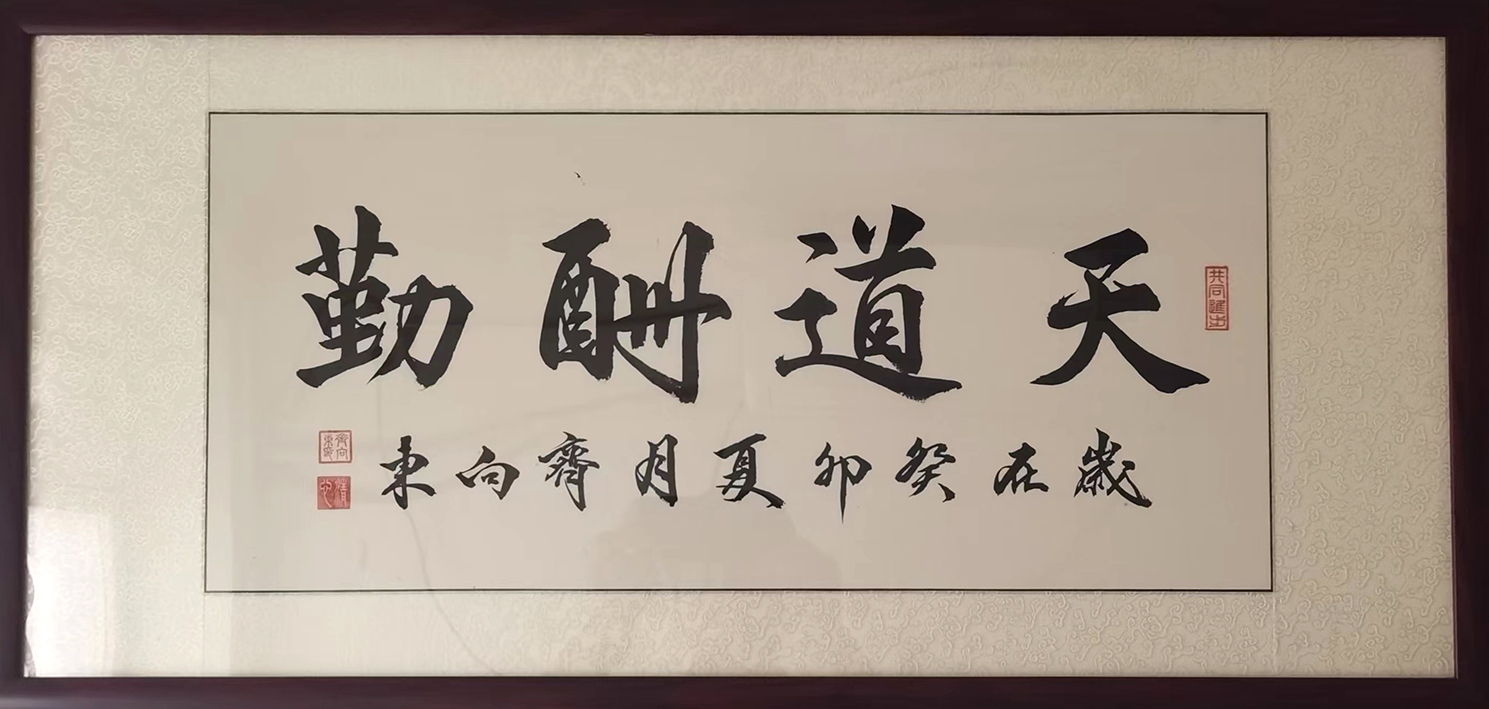 天道酬勤
歲在癸卯夏月齊向東
共同進步